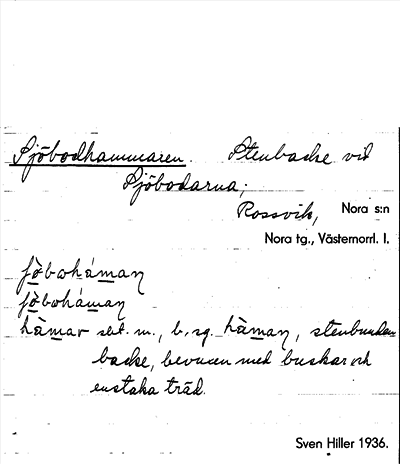 Sjöbodhammaren. Stenbacke vid
Sjöbodarna,
Rossvik, Nora s:n
Nora tg., Västernorrl. l.
hàmar sbt. m., b. sg. hàmaɳ, stenbunden
backe, bevuxen med buskar och
enstaka träd.
Sven Hiller 1936.